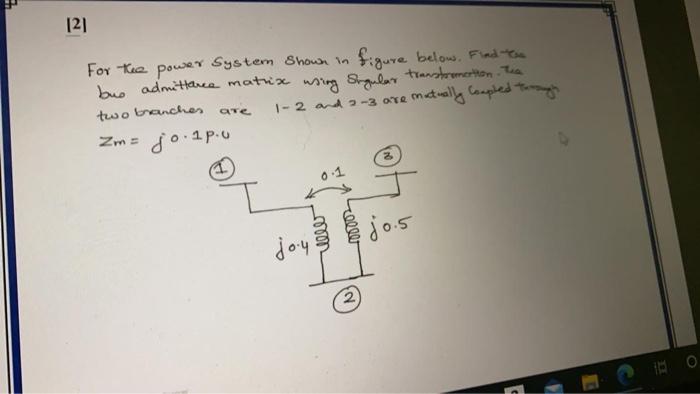 [2]
For the power System Shown in figure below. Find the
bus admittance matrix using Singular transformation. The
two branches are 1-2 and 2-3 are mutually Coupled through
Zm = j0.1p.u
1
3
0.1
j0.4
j0.5
2